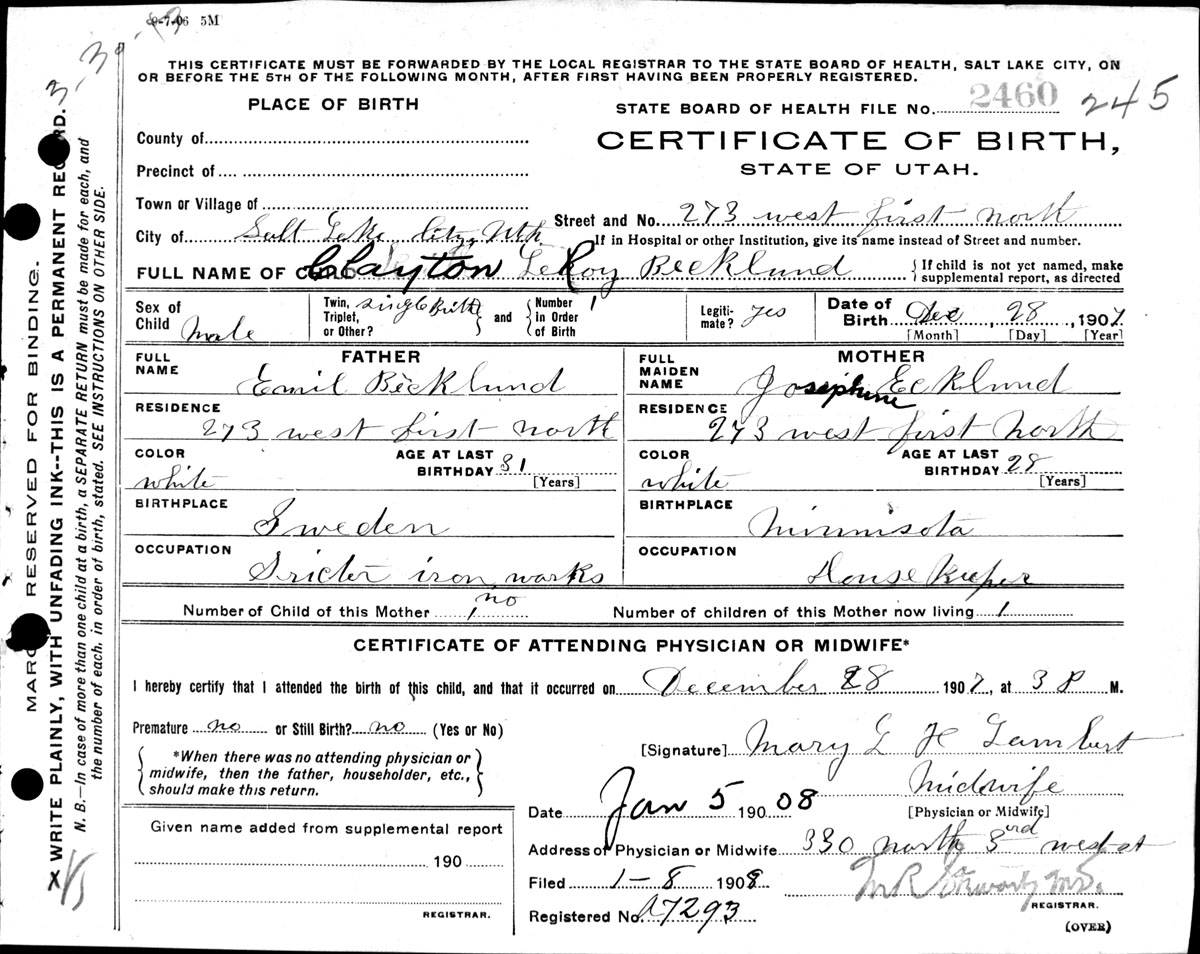 9-7-06 5M
THIS CERTIFICATE MUST BE FORWARDED BY THE LOCAL REGISTRAR TO THE STATE BOARD OF HEALTH, SALT LAKE CITY, ON
OR BEFORE THE 5TH OF THE FOLLOWING MONTH, AFTER FIRST HAVING BEEN PROPERLY REGISTERED.
PLACE OF BIRTH
STATE BOARD OF HEALTH FILE No. 2460 245
County of
CERTIFICATE OF BIRTH,
Precinct of
STATE OF UTAH.
Town or Village of
Street and No. 273 west first north
City of Salt Lake City Uth
If in Hospital or other Institution, give its name instead of Street and number.
FULL NAME OF Clayton LeRoy Becklund
{ If child is not yet named, make
supplemental report, as directed
Sex of Child Male
Twin, Triplet, or Other? single Birth
and
Number in Order of Birth 1
Legiti-mate? yes
Date of Birth Dec, 28, 1907
[Month] [Day] [Year]
FATHER
FULL NAME Emil Becklund
RESIDENCE
273 west first north
COLOR white
AGE AT LAST BIRTHDAY 31
[Years]
BIRTHPLACE
Sweden
OCCUPATION
iron works
MOTHER
FULL MAIDEN NAME Josephine Ecklund
RESIDENCE
273 west first North
COLOR white
AGE AT LAST BIRTHDAY 28
[Years]
BIRTHPLACE
Minnisota
OCCUPATION
House Keeper
Number of Child of this Mother 1 no
Number of children of this Mother now living 1
CERTIFICATE OF ATTENDING PHYSICIAN OR MIDWIFE*
I hereby certify that I attended the birth of this child, and that it occurred on December 28 1907, at 3 P M.
Premature no or Still Birth? no (Yes or No)
*When there was no attending physician or
midwife, then the father, householder, etc.,
should make this return.
[Signature] Mary L H Lambert
Midwife
[Physician or Midwife]
Date Jan 5 190 08
Given name added from supplemental report
190
REGISTRAR.
Address of Physician or Midwife 330 north 3rd west st
Filed 1-8 1908
REGISTRAR.
Registered No. A7293
(OVER)
MARGIN RESERVED FOR BINDING.
WRITE PLAINLY, WITH UNFADING INK--THIS IS A PERMANENT RECORD.
N. B.—In case of more than one child at a birth, a SEPARATE RETURN must be made for each, and
the number of each, in order of birth, stated. SEE INSTRUCTIONS ON OTHER SIDE.